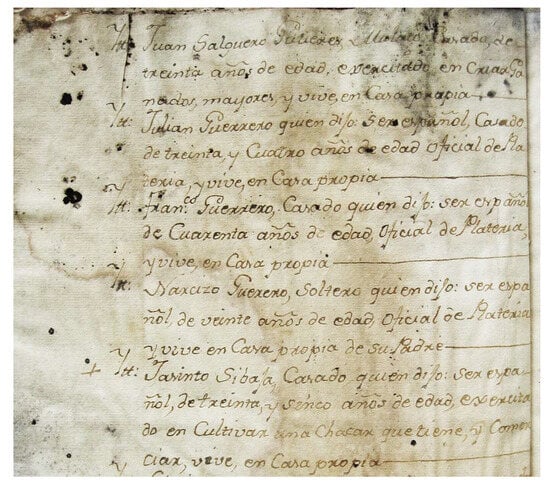 Ytt: Juan Salguero Gutieres, Mulato Casado, de
treinta años de edad, exercitado, en Criar Ga
nados, mayores, y vive, en Casa propia
Ytt: Julian Guerrero quien dijo: ser español, Casado
de treinta, y Cuatro años de edad Oficial de Pla
teria, y vive, en Casa propia
Ytt: Fran.co Guerrero, Casado quien dijo: ser español
de Cuarenta años de edad, Oficial de Plateria,
y vive, en Casa propia
Ytt: Narcizo Guerero, Soltero quien dijo: ser espa
ñol, de veinte años de edad, Oficial de Plateria
y vive en Casa propia de su Padre
Ytt: Jasinto Sibaja, Casado quien dijo: ser espa
ñol, de treinta, y senco años de edad, exercita
do en Cultivar una Chacar que tiene, y Comer
ciar, vive, en Casa propia